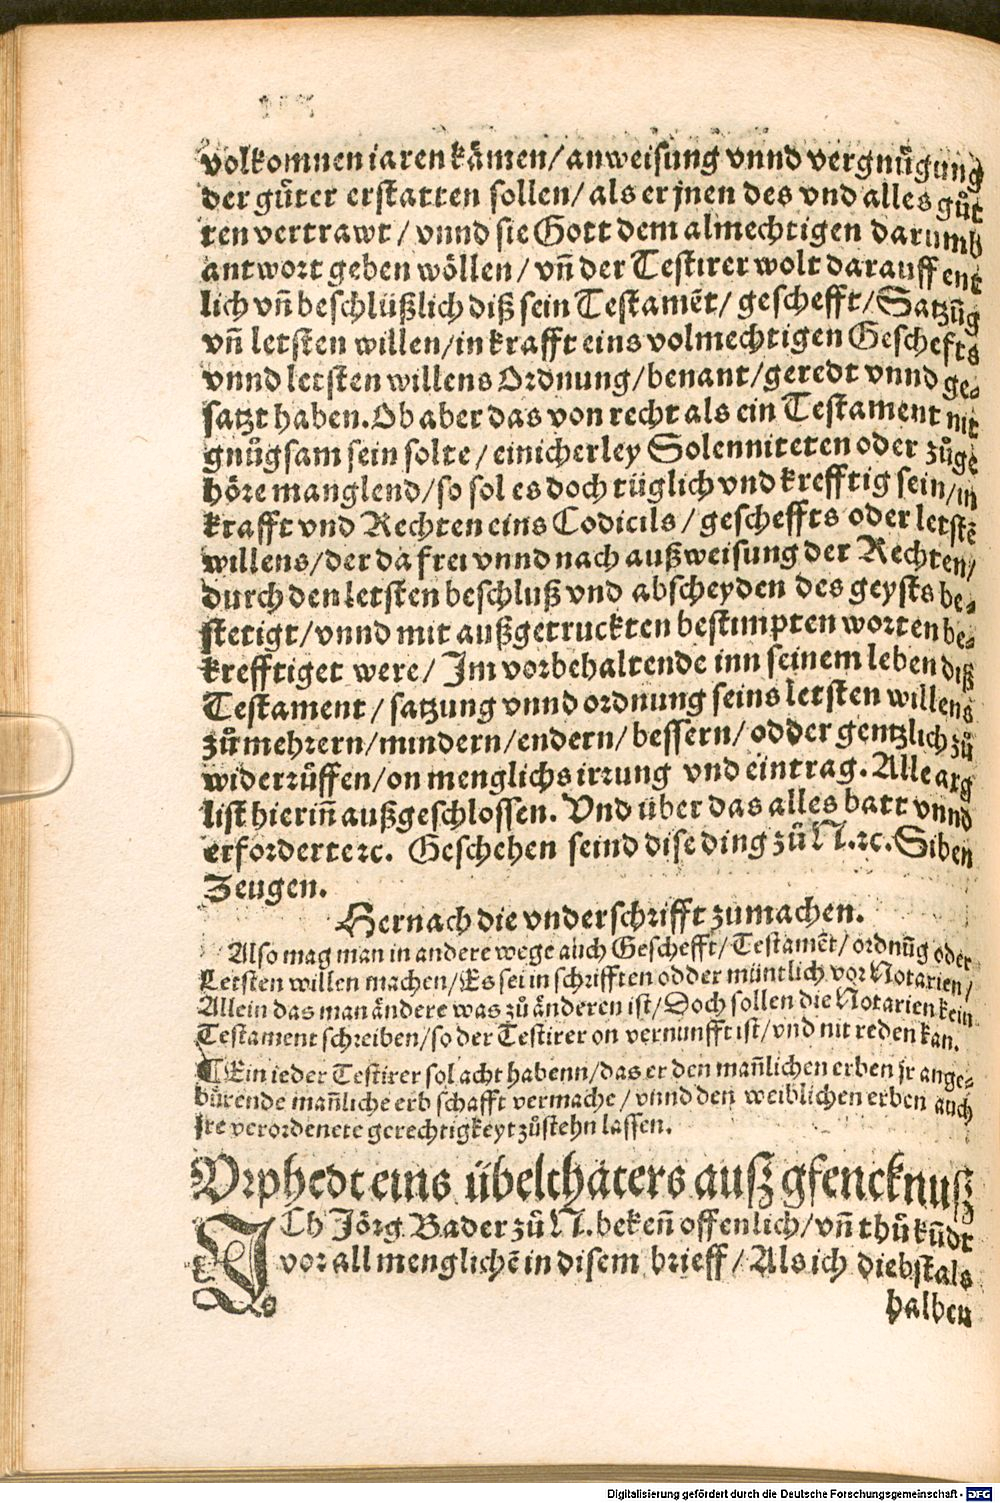 volkomnen iaren kämen/ anweisung vnnd vergnügung
der güter erstatten sollen/ als er jnen des vnd alles gůt
ren vertrawt/ vnnd sie Gott dem almechtigen darumb
antwort geben wöllen/ vñ der Testirer wolt darauff ent
lich vñ beschlüßlich diß sein Testamẽt/ geschefft/ Satzũg
vñ letsten willen/ in krafft eins volmechtigen Geschefts
vnnd letsten willens Ordnung/ benant/ geredt vnnd ge⸗
satzt haben. Ob aber das von recht als ein Testament nit
gnůgsam sein solte/ einicherley Solenniteten oder zůge
höre manglend/ so sol es doch tüglich vnd krefftig sein/ in
krafft vnd Rechten eins Codicils/ gescheffts oder letstẽ
willens/ der da frei vnnd nach außweisung der Rechten/
durch den letsten beschluß vnd abscheyden des geysts be⸗
stetigt/ vnnd mit außgetruckten bestimpten worten be⸗
krefftiget were/ Im vorbehaltende inn seinem leben diß
Testament/ satzung vnnd ordnung seins letsten willens
zů mehrern/ mindern/ endern/ bessern/ odder gentzlich zů
widerrůffen/ on menglichs irrung vnd eintrag. Alle arg
list hierin̄ außgeschlossen. Vnd über das alles batt vnnd
erfordert ꝛc. Geschehen seind dise ding zů N. ꝛc. Siben
Zeugen.
Hernach die vnderschrifft zumachen.
Also mag man in andere wege auch Geschefft/ Testamẽt/ ordnũg oder
Letsten willen machen/ Es sei in schrifften odder müntlich vor Notarien/
Allein das man ändere was zů änderen ist/ Doch sollen die Notarien kein
Testament schreiben/ so der Testirer on vernunfft ist/ vnd nit reden kan.
¶ Ein ieder Testirer sol acht habenn/ das er den man̄lichen erben jr ange⸗
bürende man̄liche erb schafft vermache/ vnnd den weiblichen erben auch
jre verordenete gerechtigkeyt zůstehn lassen.
Vrphedt eins übelthäters ausz gfencknusz
ICh Jörg Bader zů N. beken̄ offenlich/ vñ thů kũdt
vor all menglichẽ in disem brieff/ Als ich diebstals
halben
Digitalisierung gefördert durch die Deutsche Forschungsgemeinschaft - DFG